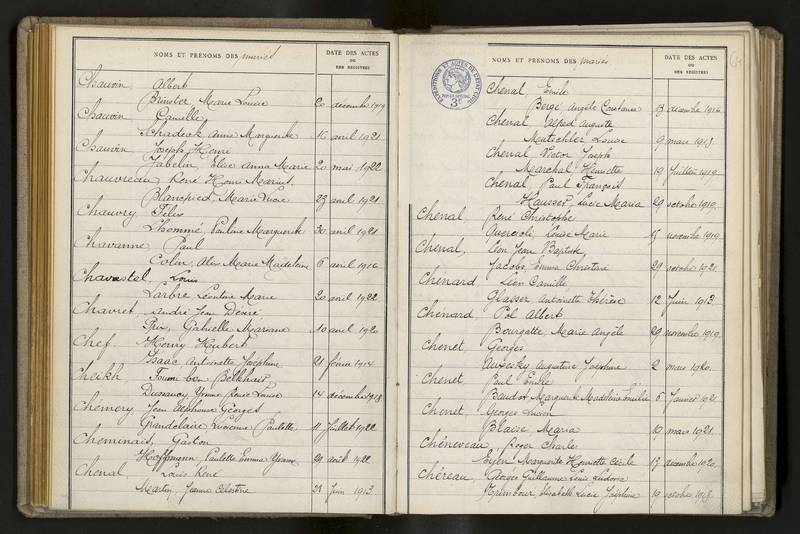 NOMS ET PRÉNOMS DES mariés
DATE DES ACTES
OU
DES REGISTRES
Chauvin Albert
Marie Louise 20 décembre 1919
Chauvin Camille
Anne Marguerite 16 avril 1921
Chauvin Joseph Henri
Elise Anna Marie 20 mai 1922
Chauvreau René Henri Marius
Blanpied, Marie Lucie 23 avril 1921
Chauvry Félix
L'homme, Pauline Marguerite 30 avril 1921
Chavanne Paul
Colin, Alix Marie Madeleine 6 avril 1916
Chavastel, Louis
Larbre Léontine Marie 20 avril 1922
Chavret André Jean Désiré
Gabrielle 10 avril 1920
Chef Henry Hubert
Isaac Antoinette Joséphine 21 février 1914
Cheikh ben Belkhair
Yvonne Renée Louise 14 décembre 1918
Chémery Jean Alphonse Georges
Grandclaire Lucienne Paulette 11 Juillet 1922
Cheminais, Gaston
Hoffmann, Paulette Emma Yvonne 29 août 1922
Chenal Louis René
Martin Jeanne Célestine 21 Juin 1913
NOMS ET PRÉNOMS DES mariés
DATE DES ACTES
OU
DES REGISTRES
3F
Chenal Emile
Bergé Angèle Constance 13 décembre 1916
Chenal Alfred Auguste
Mentschler Louise 9 mars 1918
Chenal Victor Joseph
Marchal, Henriette 19 Juillet 1919
Chenal Paul François
Hausser, Lucie Maria 29 octobre 1919
Chenal René Christophe
Louise Marie 17 novembre 1919
Chenal, Léon Jean Baptiste
Jacobs, Emma Christine 29 octobre 1921
Chénard Léon Camille
Glasser Antoinette Thérèse 12 Juin 1913
Chénard Pol Albert
Bourgatte Marie Angèle 29 novembre 1919
Chenet Georges
Augustine Joséphine 2 mars 1920
Chenet Paul Emile
Baudot Marguerite Madeleine Emilie 6 Janvier 1921
Chenet Georges Lucien
Blaise Maria 19 mars 1921
Chéneveau Roger Charles
Marguerite Henriette Cécile 17 décembre 1920
Chéreau, Georges Guillaume Louis
Elisabeth Lucie Joséphine 19 octobre 1918